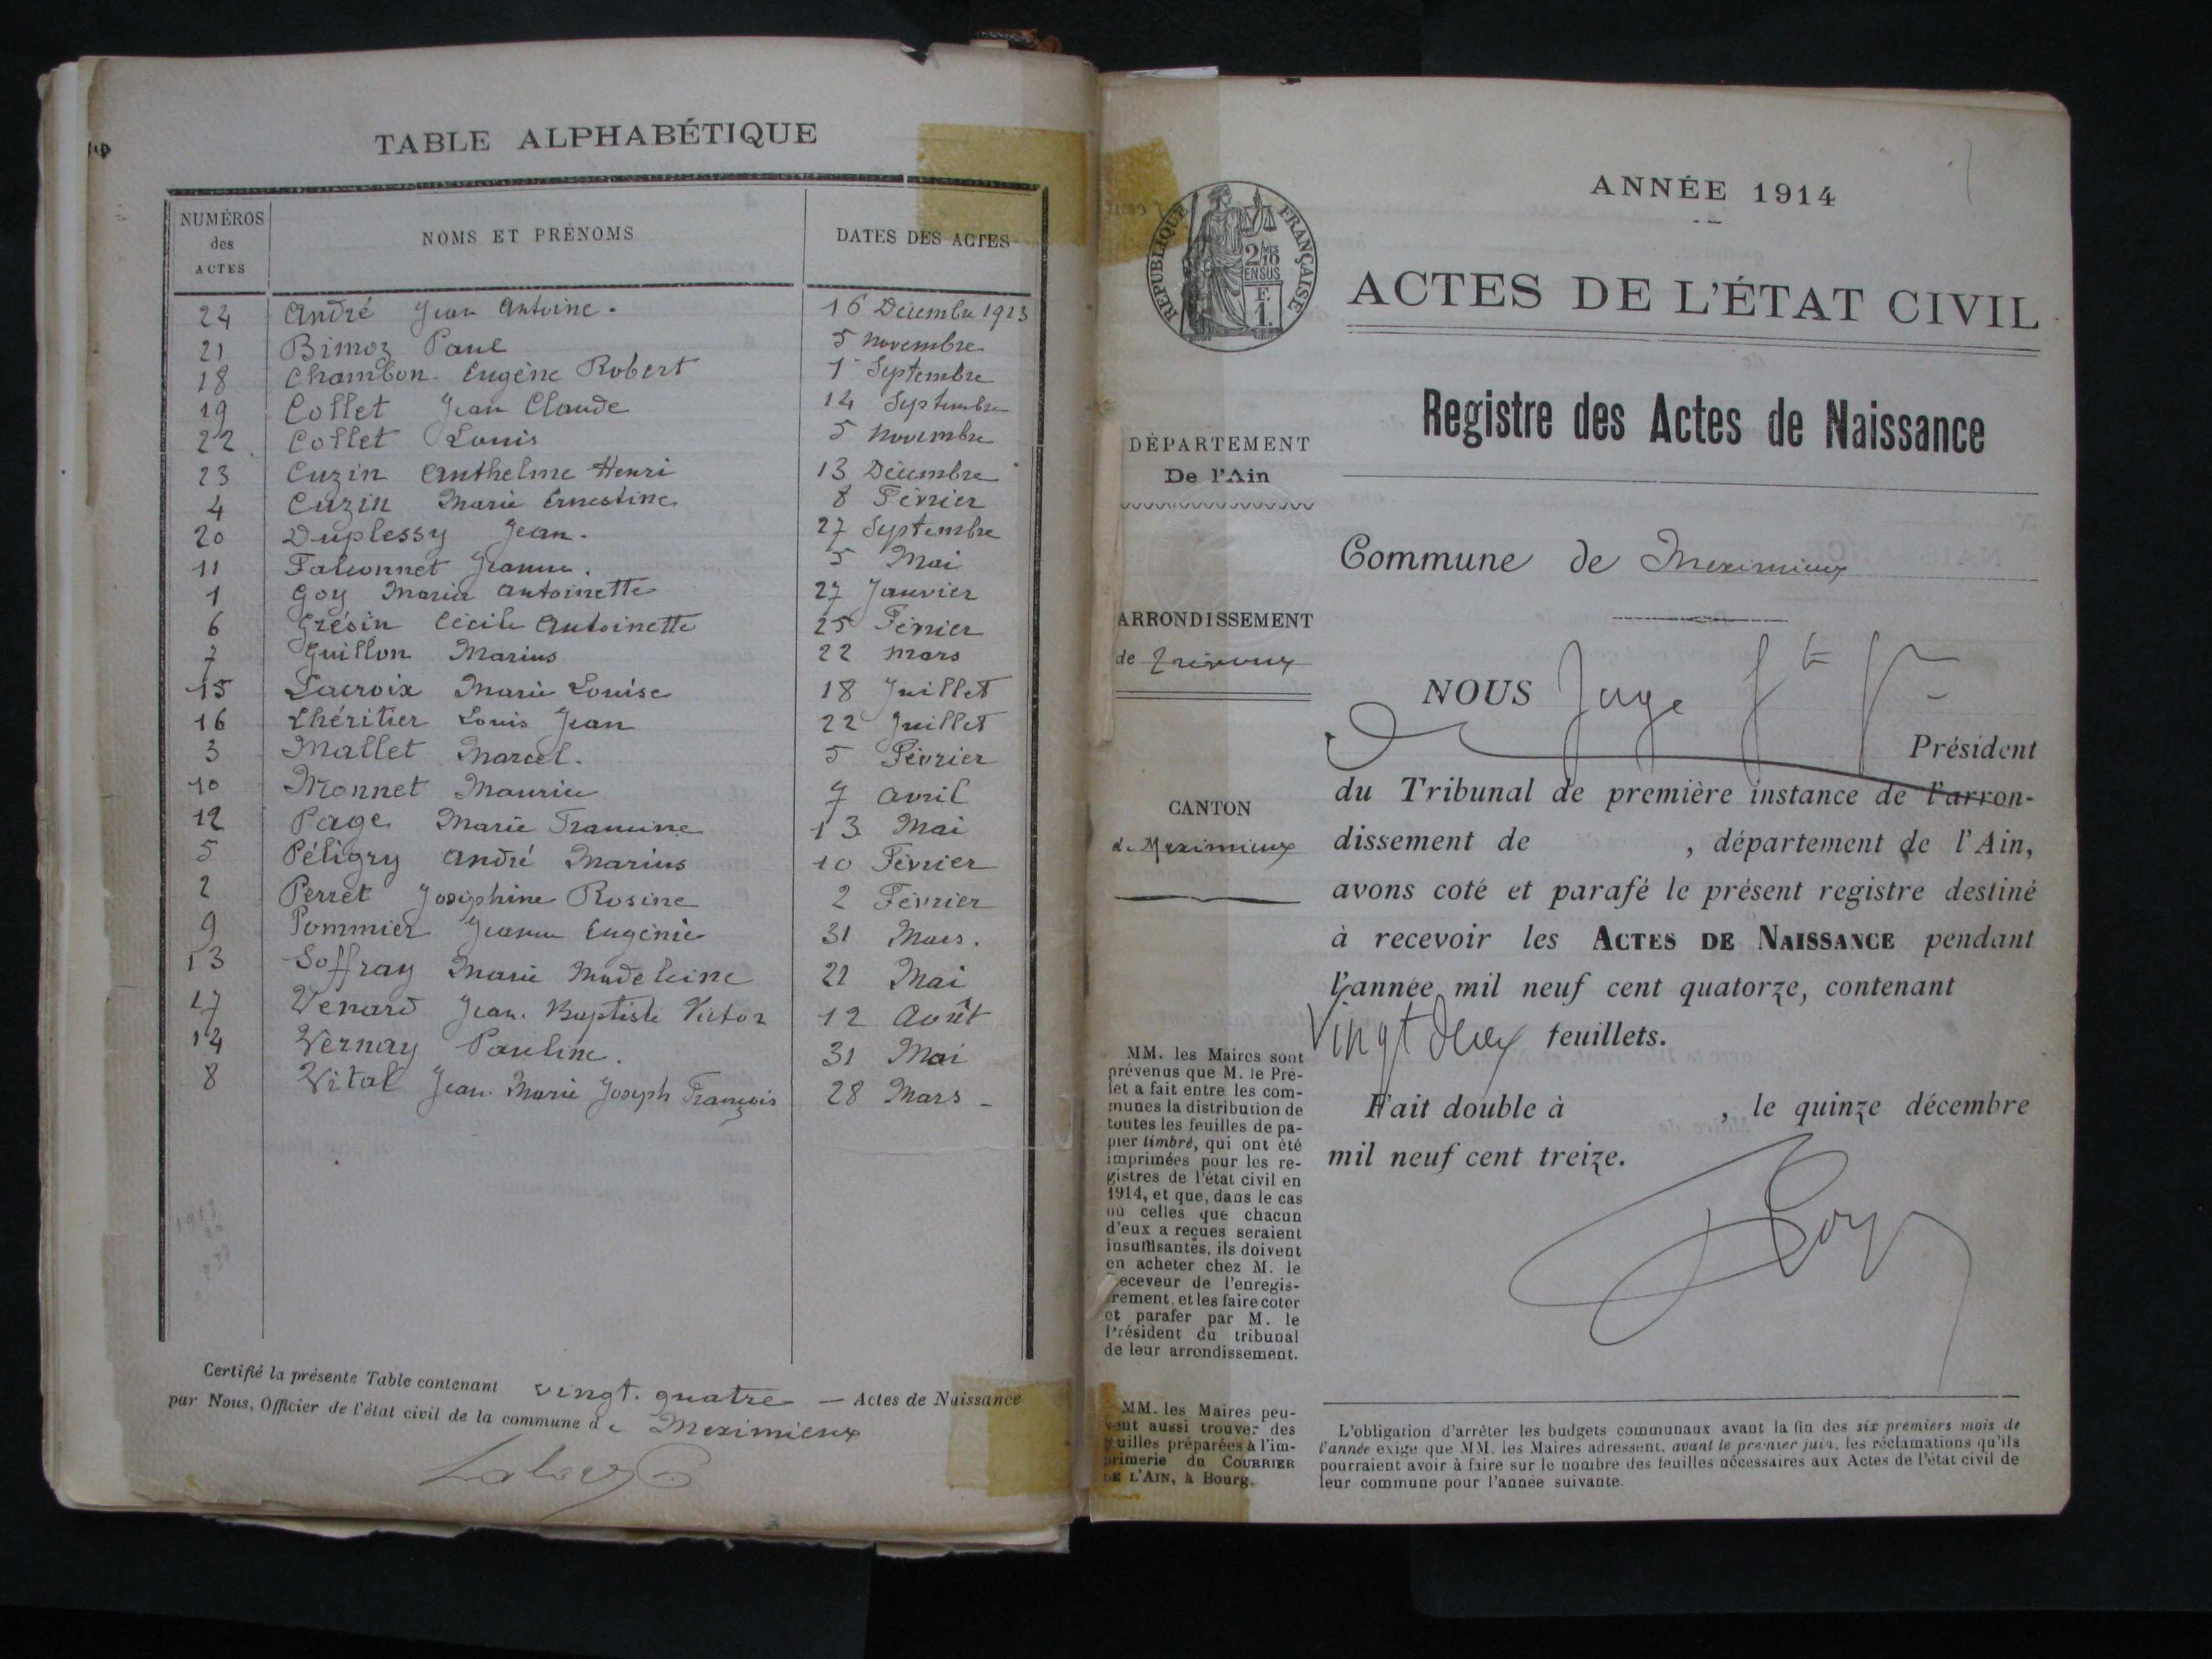 TABLE ALPHABÉTIQUE
NUMÉROS des ACTES
NOMS ET PRÉNOMS
DATES DES ACTES
24 André Jean Antoine. 16 Décembre 1913
21 Bimoz Paul 5 novembre
18 Chambon Eugène Robert 1 Septembre
19 Collet Jean Claude 14 Septembre
22 Collet Louis 5 novembre
23 Cuzin Anthelme Henri 13 Décembre
4 Cuzin Marie Ernestine 8 Février
20 Duplessy Jean. 27 Septembre
11 Falconnet Jeanne. 5 Mai
1 Goy Maria Antoinette 27 Janvier
6 Grésin Cécile Antoinette 25 Février
7 Guillon Marius 22 mars
15 Lacroix Marie Louise 18 Juillet
16 Lhéritier Louis Jean 22 Juillet
3 Mallet Marcel. 5 Février
10 Monnet Maurice 7 avril
12 Page Marie Francine 13 Mai
5 Péligry André Marius 10 Février
2 Perret Joséphine Rosine 2 Février
9 Pommier Jeanne Eugénie 31 Mars.
13 Soffray Marie Madeleine 21 Mai
17 Venard Jean. Baptiste Victor 12 Août
14 Vernay Pauline. 31 Mai
8 Vital Jean. Marie Joseph François 28 Mars
Certifié la présente Table contenant vingt. quatre — Actes de Naissance
par Nous, Officier de l'état civil de la commune de Meximieux
ANNÉE 1914
RÉPUBLIQUE FRANÇAISE
ACTES DE L'ÉTAT CIVIL
Registre des Actes de Naissance
DÉPARTEMENT
De l'Ain
Commune de Meximieux
ARRONDISSEMENT
de Trévoux
NOUS Juge
Président
CANTON
de Meximieux
du Tribunal de première instance de l'arron-
dissement de , département de l'Ain,
avons coté et parafé le présent registre destiné
à recevoir les ACTES DE NAISSANCE pendant
l'année mil neuf cent quatorze, contenant
Vingt deux feuillets.
Fait double à , le quinze décembre
mil neuf cent treize.
MM. les Maires sont
prévenus que M. le Pré-
fet a fait entre les com-
munes la distribution de
toutes les feuilles de pa-
pier timbré, qui ont été
imprimées pour les re-
gistres de l'état civil en
1914, et que, dans le cas
où celles que chacun
d'eux a reçues seraient
insuffisantes, ils doivent
en acheter chez M. le
Receveur de l'enregis-
trement, et les faire coter
et parafer par M. le
Président du tribunal
de leur arrondissement.
MM. les Maires peu-
vent aussi trouver des
feuilles préparées à l'im-
primerie du COURRIER
DE L'AIN, à Bourg.
L'obligation d'arrêter les budgets communaux avant la fin des six premiers mois de
l'année exige que MM. les Maires adressent, avant le premier juin, les réclamations qu'ils
pourraient avoir à faire sur le nombre des feuilles nécessaires aux Actes de l'état civil de
leur commune pour l'année suivante.